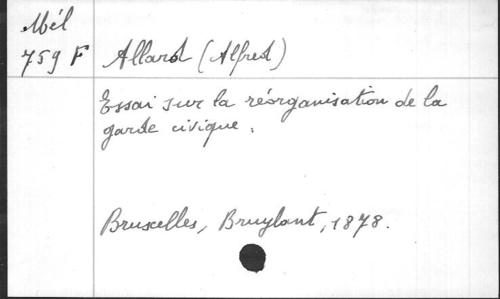 Mél
759 F Allard (Alfred)
Essai sur la réorganisation de la
garde civique.
Bruxelles, Bruylant, 1878.